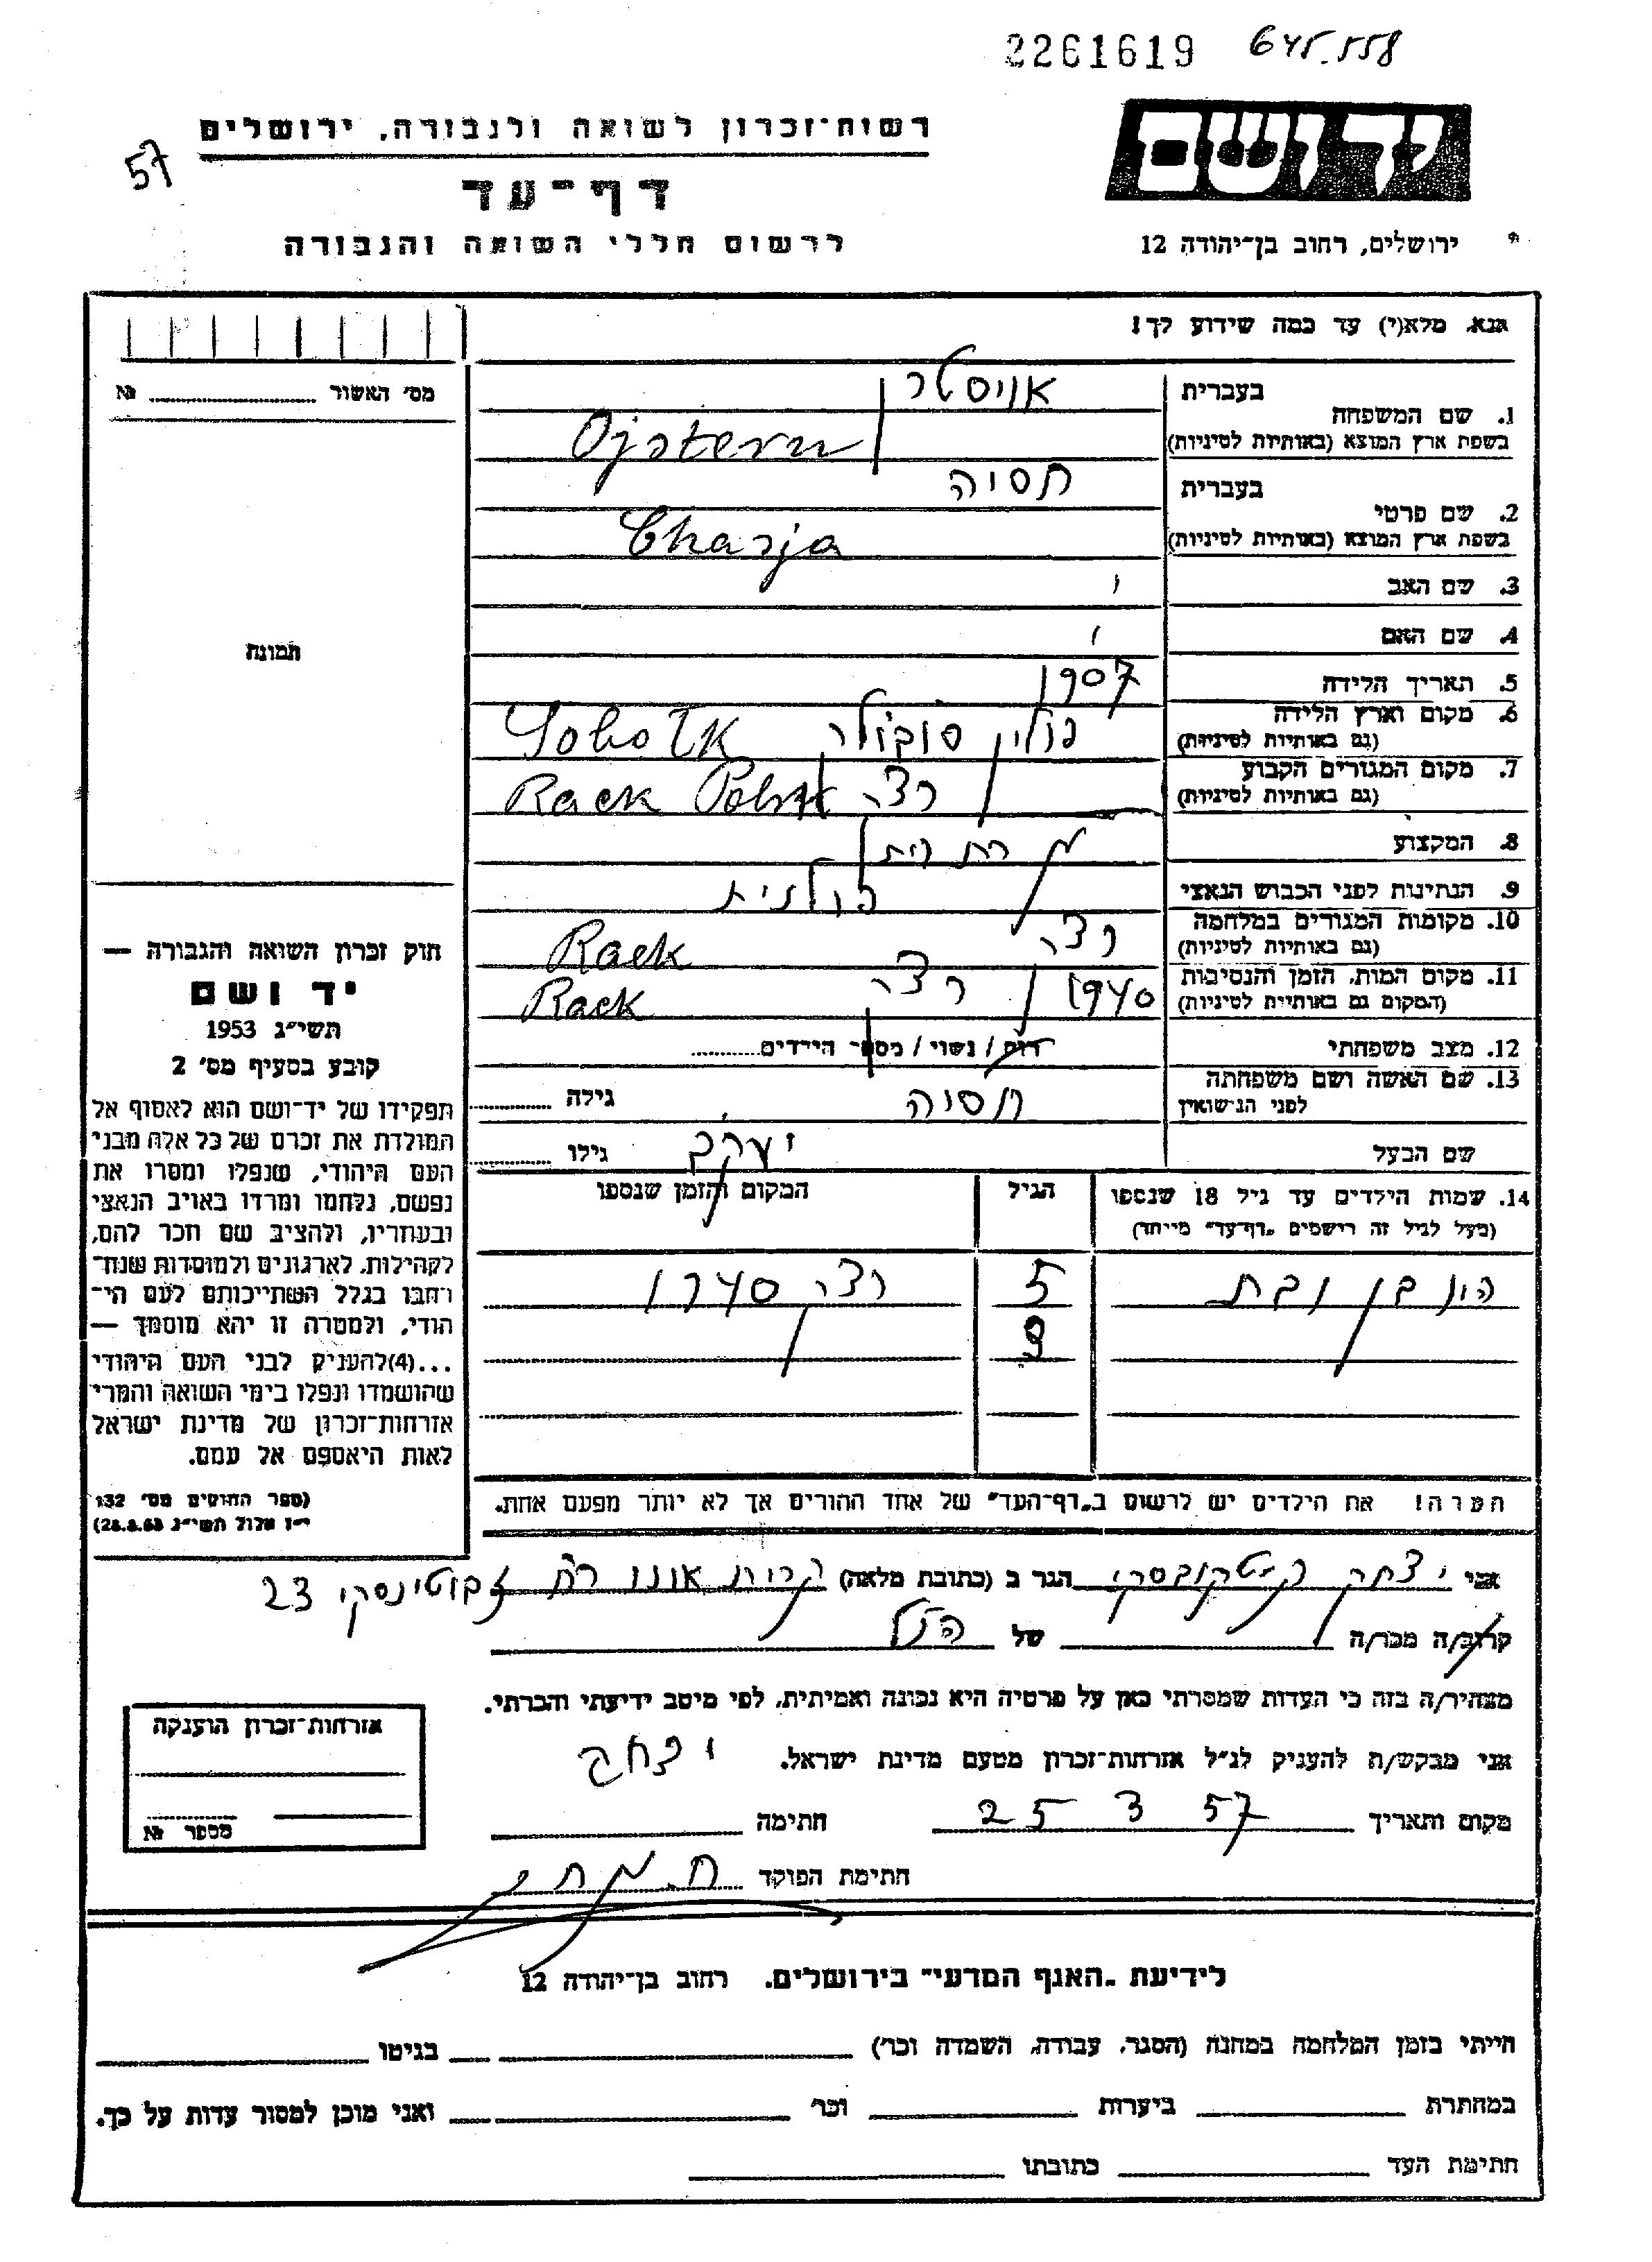 2261619 645.558
57
רשות־זכרון לשואה ולגבורה, ירושלים
דף־עד
לרשום חללי השואה והגבורה
יד ושם
ירושלים, רחוב בן־יהודה 12
אנא, מלא(י) עד כמה שידוע לך!
מס' האשור №
תמונה
בעברית
1. שם המשפחה
בשפת ארץ המוצא (באותיות לטיניות)
אויסטרן
Ojstern
בעברית
2. שם פרטי
בשפת ארץ המוצא (באותיות לטיניות)
חסיה
Chasja
3. שם האב
4. שם האם
5. תאריך הלידה 1907
6. מקום וארץ הלידה
(גם באותיות לטיניות)
פולין
7. מקום המגורים הקבוע
(גם באותיות לטיניות)
8. המקצוע
9. הנתינות לפני הכבוש הנאצי פולנית
10. מקומות המגורים במלחמה
(גם באותיות לטיניות)
Raek
11. מקום המות, הזמן והנסיבות
(המקום גם באותיות לטיניות)
1940
Rack
12. מצב משפחתי רווק / נשוי / מספר הילדים
13. שם האשה ושם משפחתה
לפני הנישואין
חסיה גילה
שם הבעל יעקב גילו
14. שמות הילדים עד גיל 18 שנספו
(מעל לגיל זה רישמים „דף־עד" מייחד)
הגיל
המקום והזמן שנספו
בן ובת 5 1940
9
הערה! את הילדים יש לרשום ב„דף־העד" של אחד ההורים אך לא יותר מפעם אחת.
חוק זכרון השואה והגבורה —
יד ושם
תשי"ג 1953
קובע בסעיף מס' 2
תפקידו של יד־ושם הוא לאסוף אל
המולדת את זכרם של כל אלה מבני
העם היהודי, שנפלו ומסרו את
נפשם, נלחמו ומרדו באויב הנאצי
ובעוזריו, ולהציב שם וזכר להם,
לקהילות, לארגונים ולמוסדות שנח־
רחבו בגלל השתייכותם לעם הי־
הודי, ולמטרה זו יהא מוסמך —
...(4)להעניק לבני העם היהודי
שהושמדו ונפלו בימי השואה והמרי
אזרחות־זכרון של מדינת ישראל
לאות היאספם אל עמם.
(ספר החוקים מס' 132
י"ז אלול תשי"ג 28.8.53)
אני יצחק הגר ב (כתובת מלאה) קרית אונו רח' זבוטינסקי 23
קרוב/ה מכר/ה של הנ"ל
מצהיר/ה בזה כי העדות שמסרתי כאן על פרטיה היא נכונה ואמיתית, לפי מיטב ידיעתי והכרתי.
אני מבקש/ת להעניק לנ"ל אזרחות־זכרון מטעם מדינת ישראל.
יצחק
מקום ותאריך 25 3 57 חתימה
חתימת הפוקד
אזרחות־זכרון הוענקה
מספר №
לידיעת „האגף המדעי" בירושלים, רחוב בן־יהודה 12
חייתי בזמן המלחמה במחנה (הסגר, עבודה, השמדה וכו') בגיטו
במחתרת ביערות וכו' ואני מוכן למסור עדות על כך.
חתימת העד כתובתו